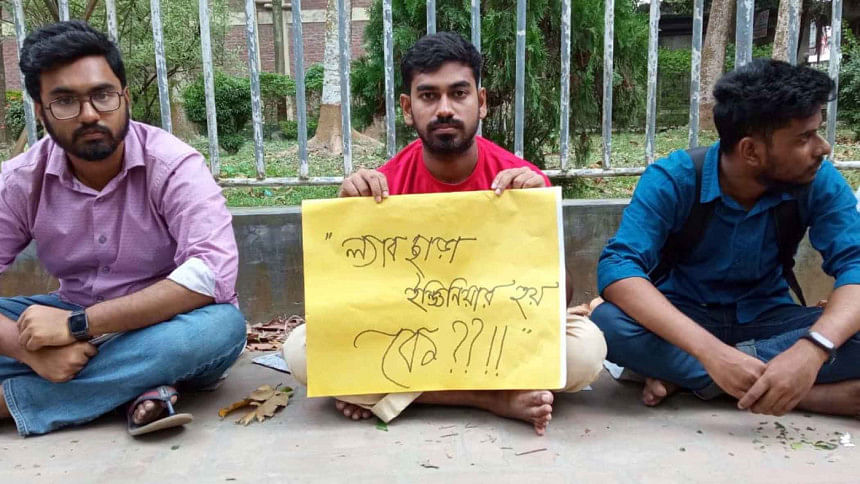 "ল্যাব ছাড়া
ইঞ্জিনিয়ার হয়
কেন??!!"